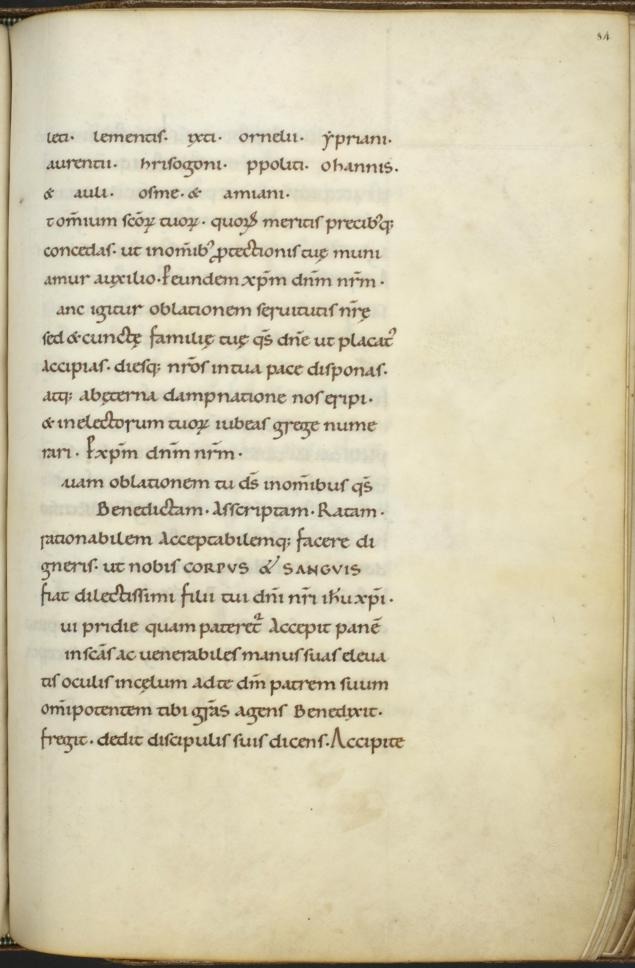 84
leti· lementis· ixti· ornelii· ẏpriani·
aurentii· hrisogoni· ppoliti· ohannis·
& auli· osme· & amiani·
tom̄ium scōꝝ tuoꝝ· quoꝝ meritis precibꝰq;
concedas· ut inom̄ibꝰ ꝓtectionis tuę muni
amur auxilio· P̄ eundem xp̄m dn̄m nr̄m·
anc igitur oblationem seruitutis nr̄ę
sed & cunctę familię tuę qs̄ dn̄e ut placatꝰ
Accipias· diesq; nr̄os in tua pace disponas·
atq; abęterna dampnatione nos eripi·
& in electorum tuoꝝ iubeas grege nume
rari· P̄ xp̄m dn̄m nr̄m·
uam oblationem tu ds̄ inom̄ibus qs̄
Benedictam· Asscriptam· Ratam·
rationabilem Acceptabilemq; facere di
gneris· ut nobis CORPVS & SANGVIS
fiat dilectissimi filii tui dn̄i nr̄i ih̄u xp̄i·
ui pridie quam pateret᷒ Accepit panē
in scās ac uenerabiles manus suas eleua
tis oculis in cęlum ad te dm̄ patrem suum
om̄ipotentem tibi gr̄as agens Benedixit·
fregit· dedit discipulis suis dicens· Accipite